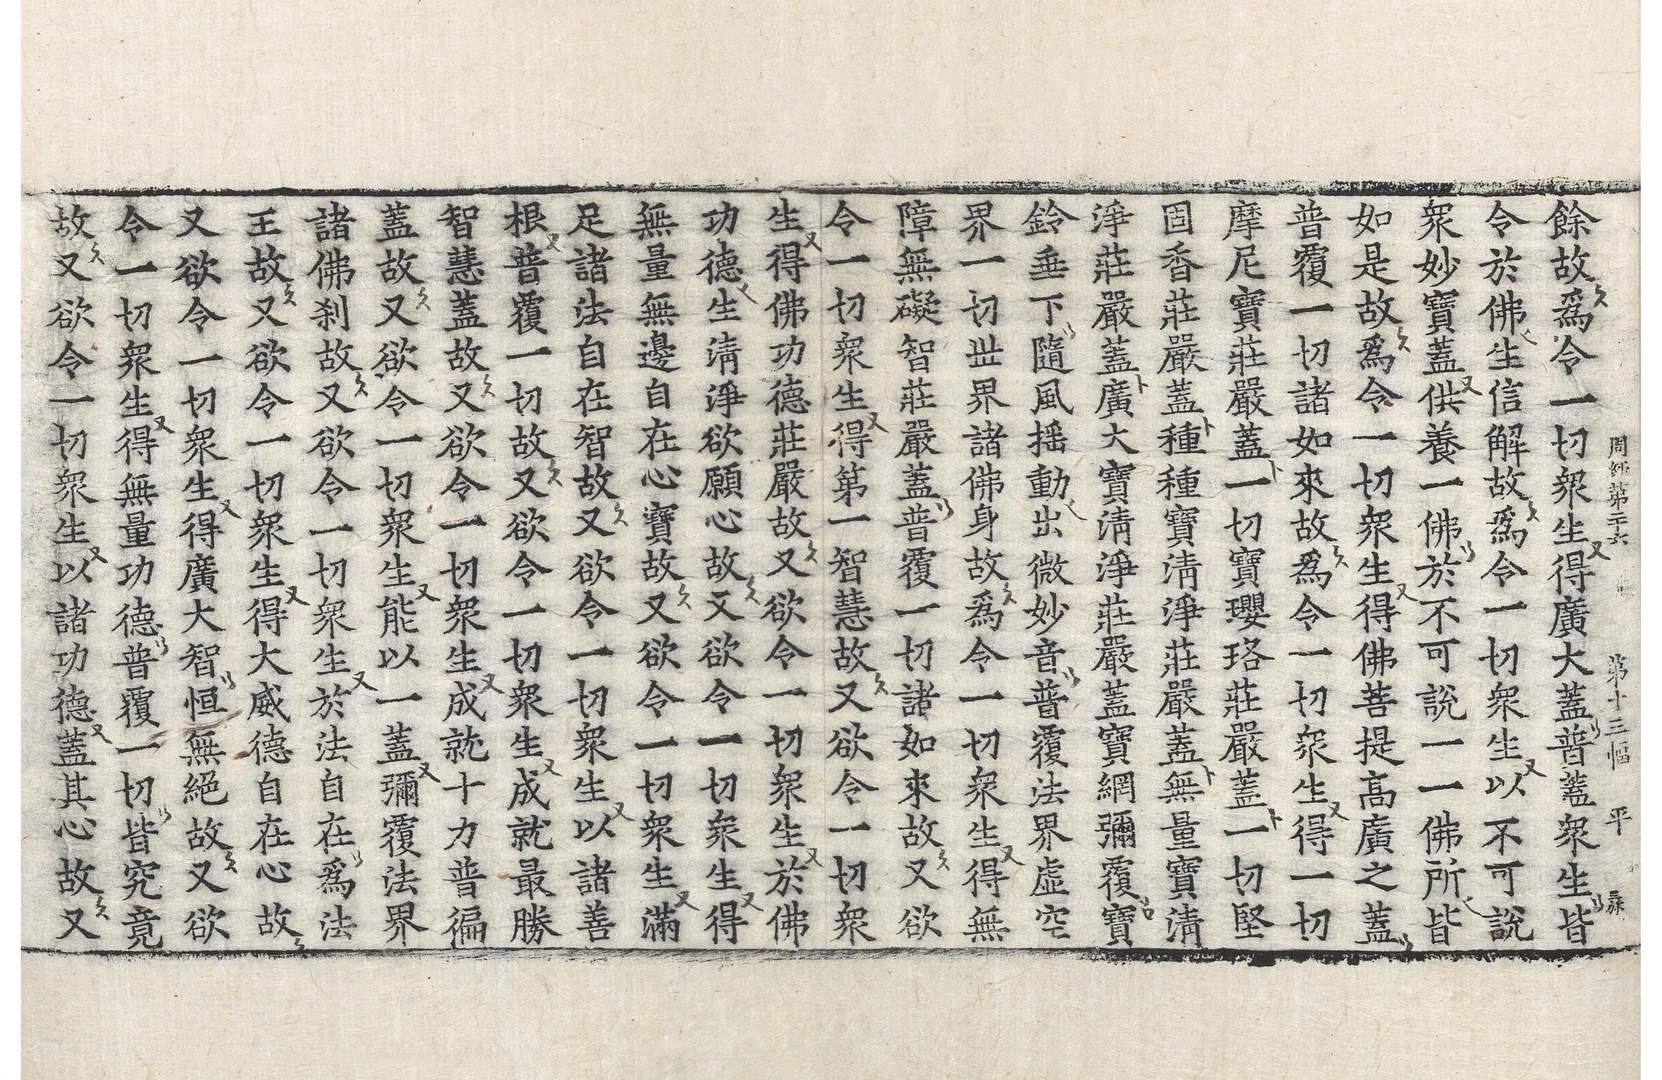 周經第二十六　第十三幅　平
餘故爲令一切衆生得廣大蓋普蓋衆生皆
令於佛生信解故爲令一切衆生以不可說
衆妙寶蓋供養一佛於不可說一一佛所皆
如是故爲令一切衆生得佛菩提高廣之蓋
普覆一切諸如來故爲令一切衆生得一切
摩尼寶莊嚴蓋一切寶瓔珞莊嚴蓋一切堅
固香莊嚴蓋種種寶清淨莊嚴蓋無量寶清
淨莊嚴蓋廣大寶清淨莊嚴蓋寶網彌覆寶
鈴垂下隨風搖動出微妙音普覆法界虛空
界一切世界諸佛身故爲令一切衆生得無
障無礙智莊嚴蓋普覆一切諸如來故又欲
令一切衆生得第一智慧故又欲令一切衆
生得佛功德莊嚴故又欲令一切衆生於佛
功德生淸淨欲願心故又欲令一切衆生得
無量無邊自在心寶故又欲令一切衆生滿
足諸法自在智故又欲令一切衆生以諸善
根普覆一切故又欲令一切衆生成就最勝
智慧蓋故又欲令一切衆生成就十力普徧
蓋故又欲令一切衆生能以一蓋彌覆法界
諸佛刹故又欲令一切衆生於法自在爲法
王故又欲令一切衆生得大威德自在心故
又欲令一切衆生得廣大智恒無絕故又欲
令一切衆生得無量功德普覆一切皆究竟
故又欲令一切衆生以諸功德蓋其心故又